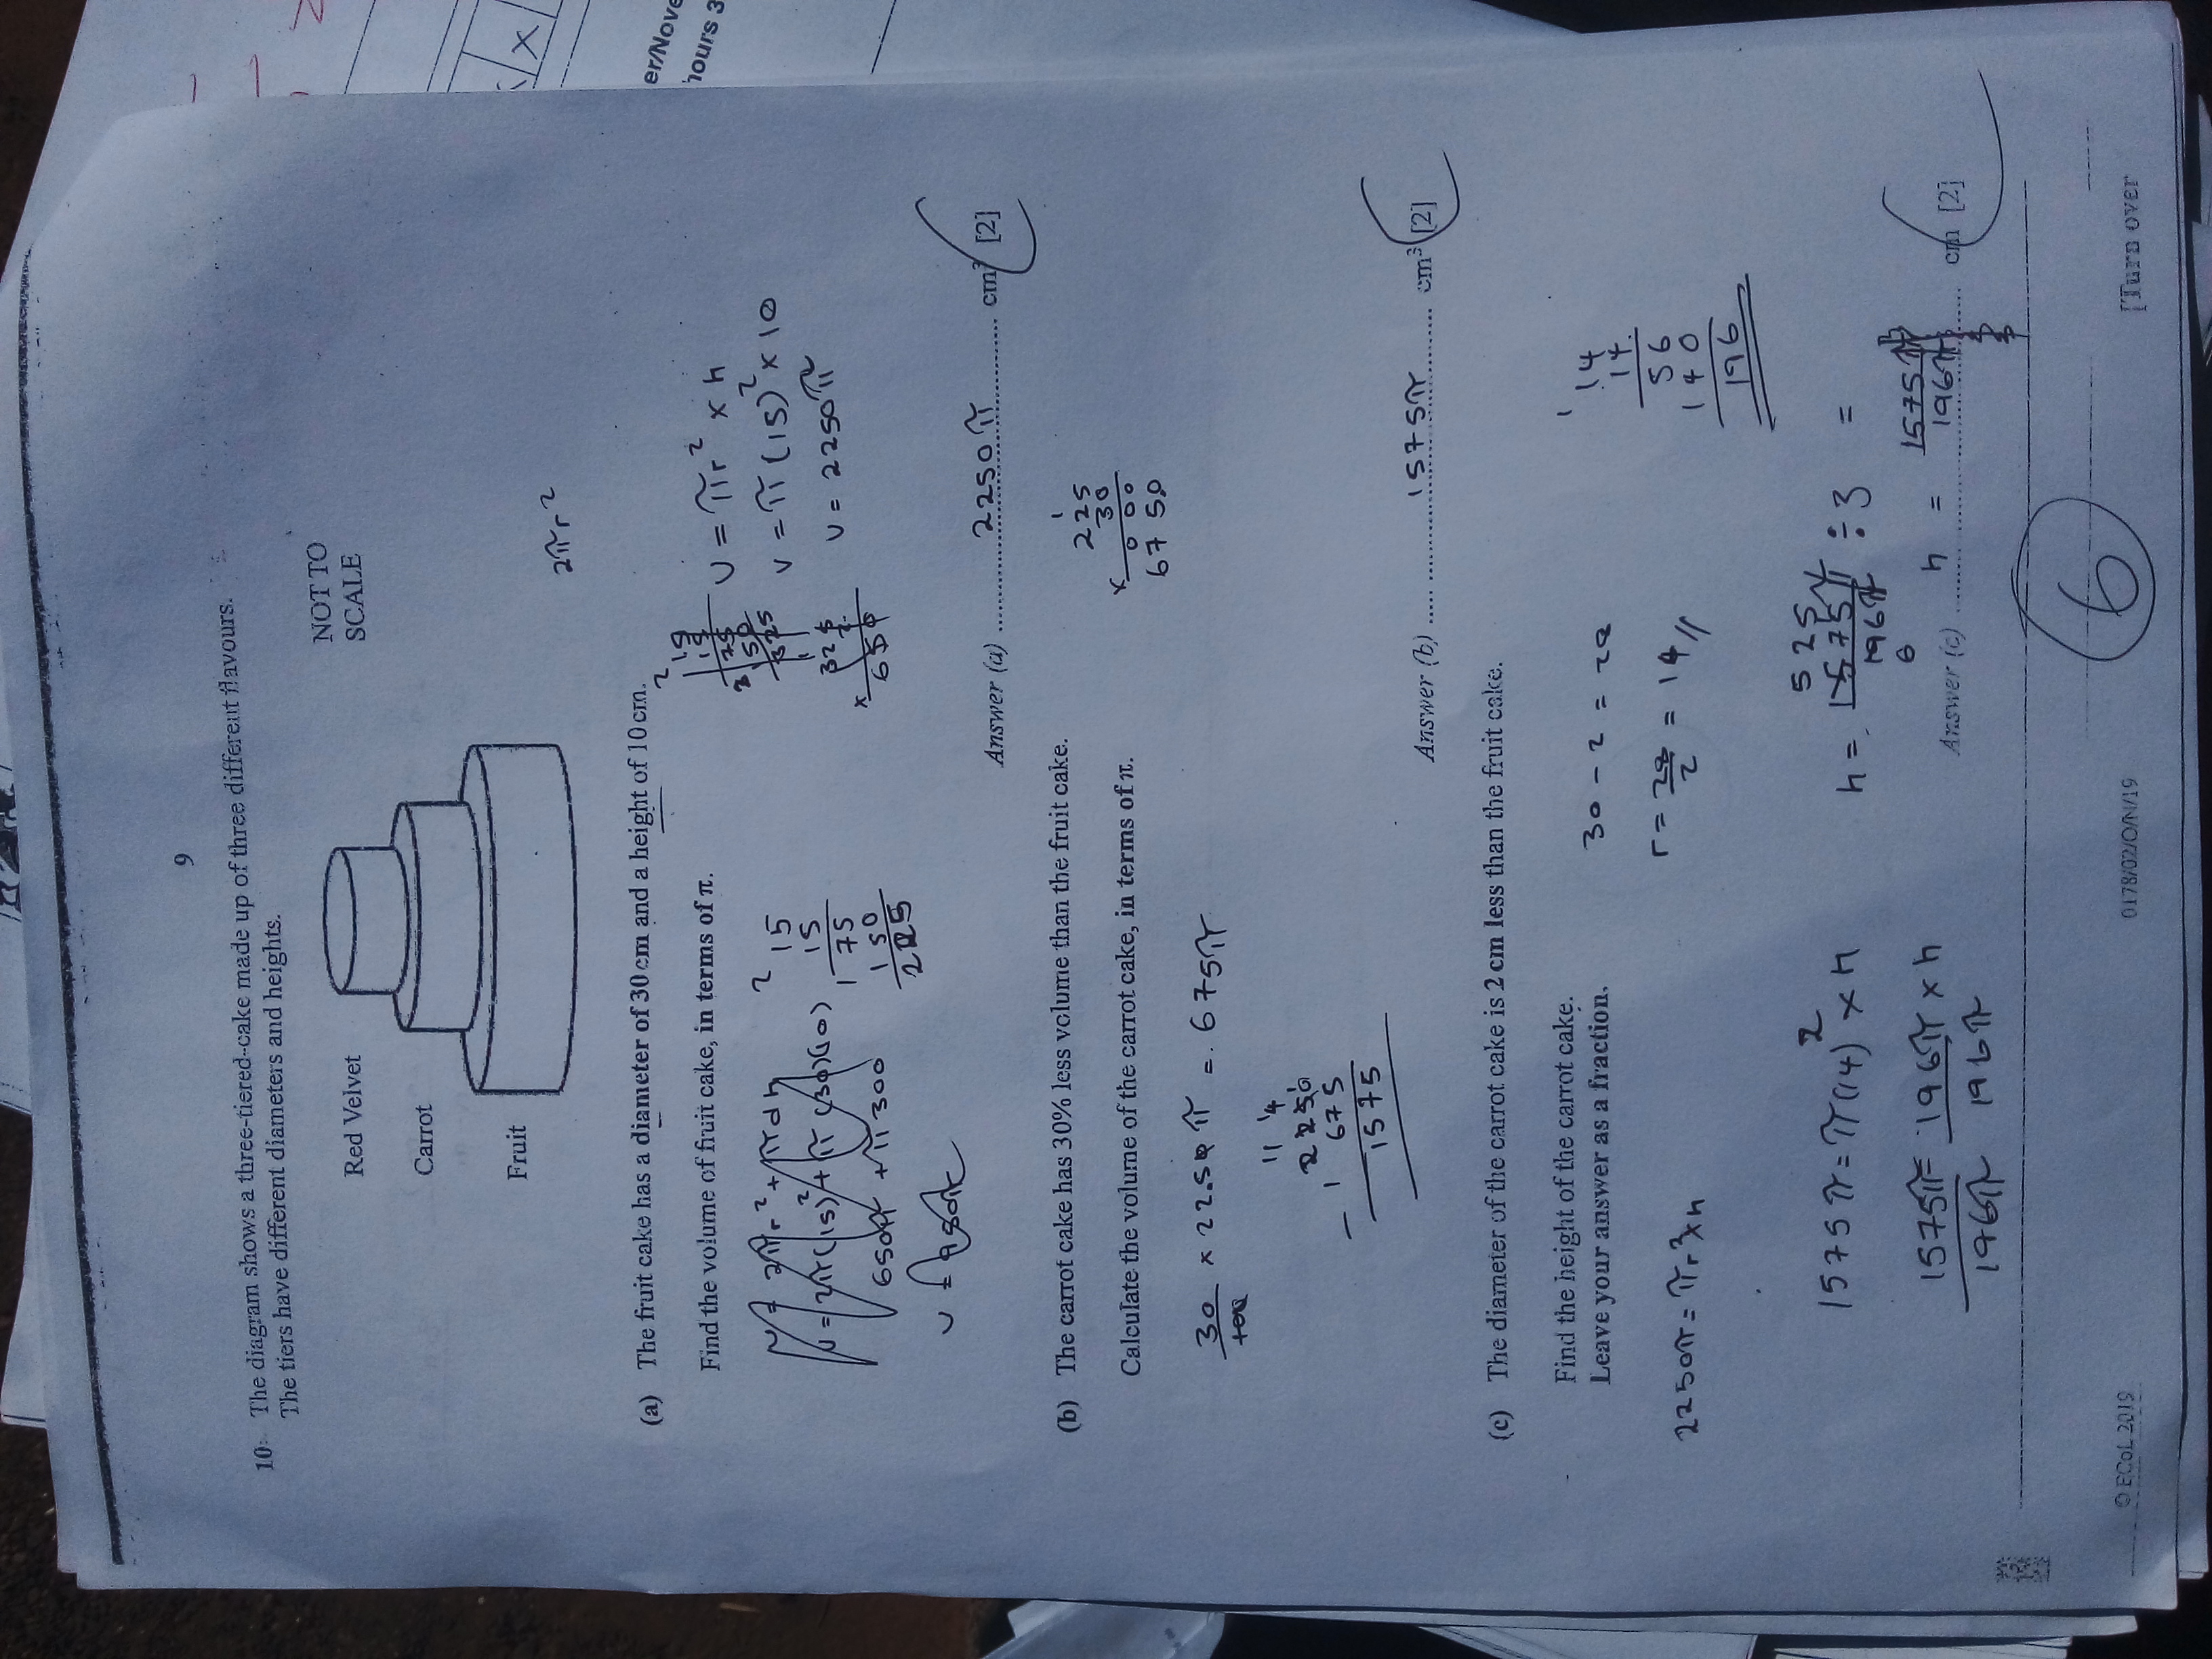 9
10 The diagram shows a three-tiered-cake made up of three different flavours.
The tiers have different diameters and heights.
NOT TO
SCALE
Red Velvet
Carrot
Fruit
2πr²
(a) The fruit cake has a diameter of 30 cm and a height of 10 cm.
Find the volume of fruit cake, in terms of π.
V = πr² × h
V = π(15)² × 10
V = 2250π
V = 2πr² + πdh
V = 2π(15)² + π(30)(10)
650π + π300
2
15
15
1 75
150
225
2
15
15
75
50
325
325
2
× 650
Answer (a) 2250π cm³ [2]
(b) The carrot cake has 30% less volume than the fruit cake.
Calculate the volume of the carrot cake, in terms of π.
1
225
× 30
000
6750
30/100 × 2250π = 675π
11 14
2250
- 1 675
1575
Answer (b) 1575π cm³ [2]
(c) The diameter of the carrot cake is 2 cm less than the fruit cake.
Find the height of the carrot cake.
Leave your answer as a fraction.
30 - 2 = 28
r = 28/2 = 14
1
14
14
56
140
196
2250π = πr² × h
1575π = π(14)² × h
1575π/196π = 196π/196π × h
525
h = 1575π/196π ÷ 3 =
6
Answer (c) h = 1575π/196π cm [2]
6
© ECoL 2019
0178/02/O/N/19
[Turn over
er/Nove
hours 3
x